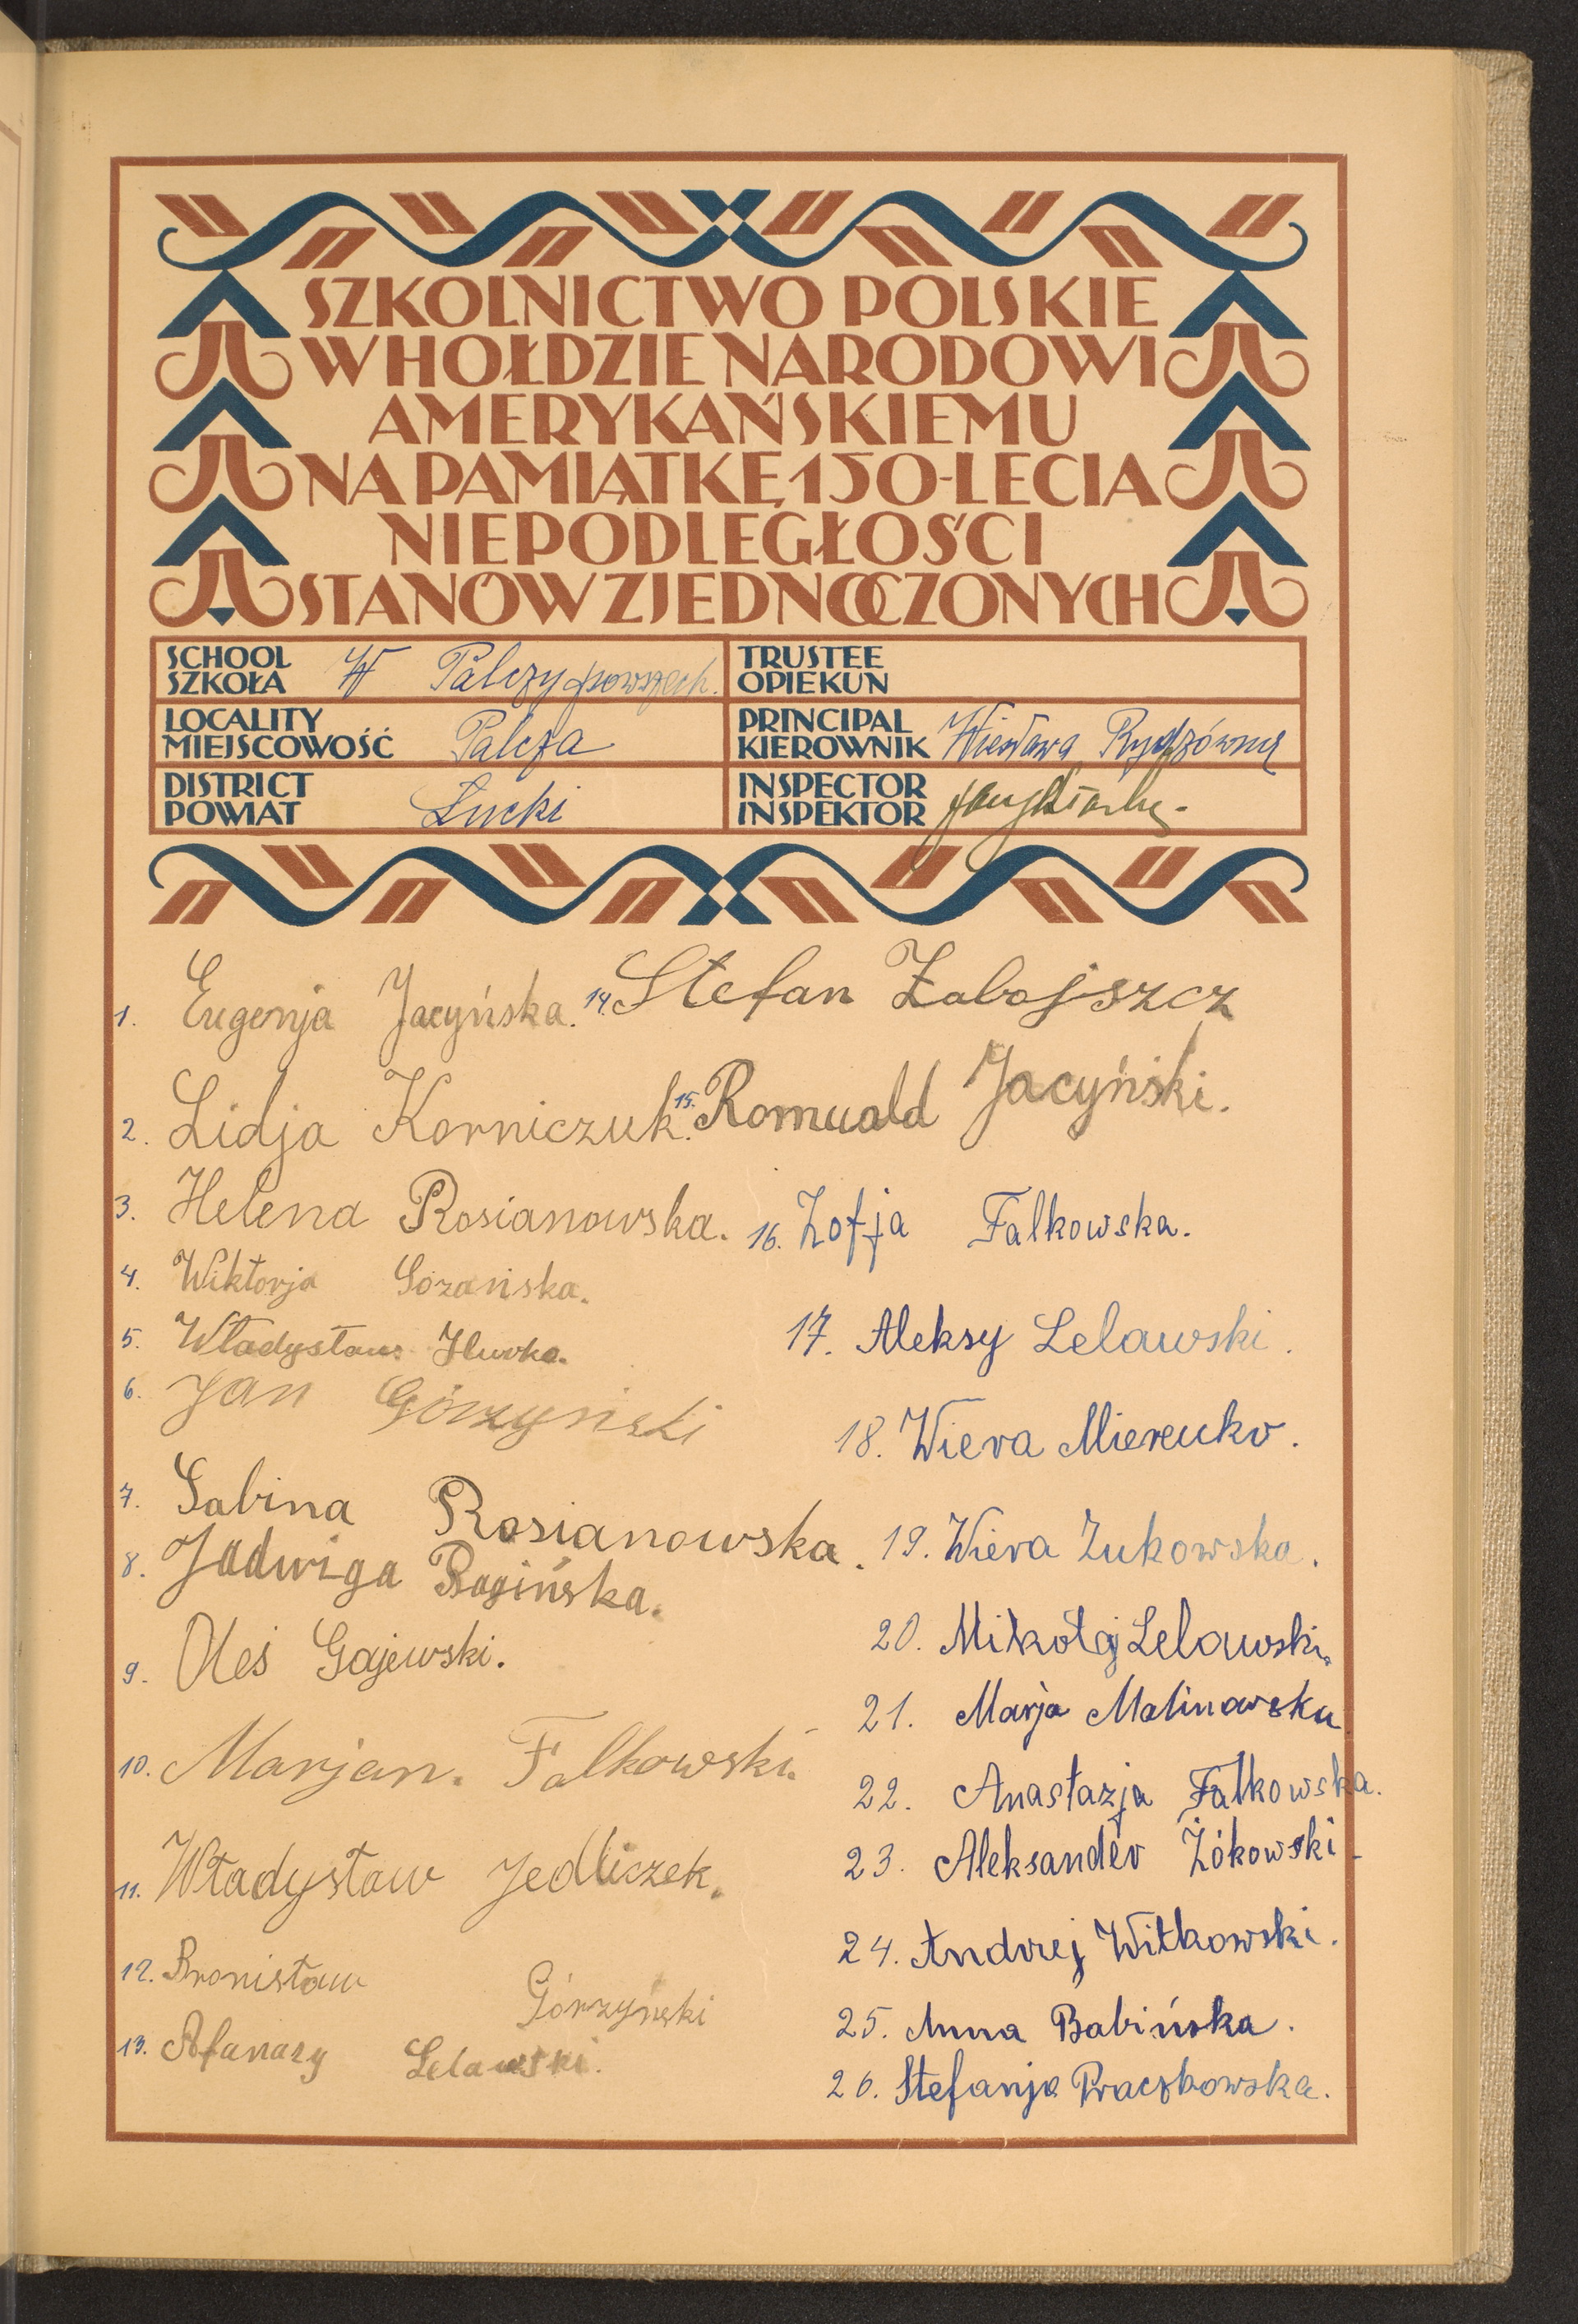 SZKOLNICTWO POLSKIE
W HOŁDZIE NARODOWI
AMERYKAŃSKIEMU
NA PAMIĄTKĘ 150-LECIA
NIEPODLEGŁOŚCI
STANÓW ZJEDNOCZONYCH
SCHOOL
SZKOŁA W Palczy powszech.
LOCALITY
MIEJSCOWOŚĆ Palcza
DISTRICT
POWIAT Łucki
TRUSTEE
OPIEKUN
PRINCIPAL
KIEROWNIK Wiesława Rydzówna
INSPECTOR
INSPEKTOR
1. Eugenja Jacyńska.
2. Lidja Korniczuk.
3. Helena Rosianowska.
4. Wiktorja Gózańska.
5. Władysław
6. Jan Górzyński
7. Sabina Rosianowska.
8. Jadwiga Rogińska.
9. Oleś Gajewski.
10. Marjan. Falkowski.
11. Władysław Jedliczek.
12. Bronisław Górzyński
13. Afanazy Lelawski.
14. Stefan Zabojszcz
15. Romuald Jacyński.
16. Zofja Falkowska.
17. Aleksy Lelawski.
18. Wiera
19. Wiera Żukowska.
20. Mikołaj Lelawski.
21. Marja Malinowska
22. Anastazja Falkowska.
23. Aleksander Żókowski
24. Andrzej Witkowski.
25. Anna Babińska.
26. Stefanja Praczkowska.